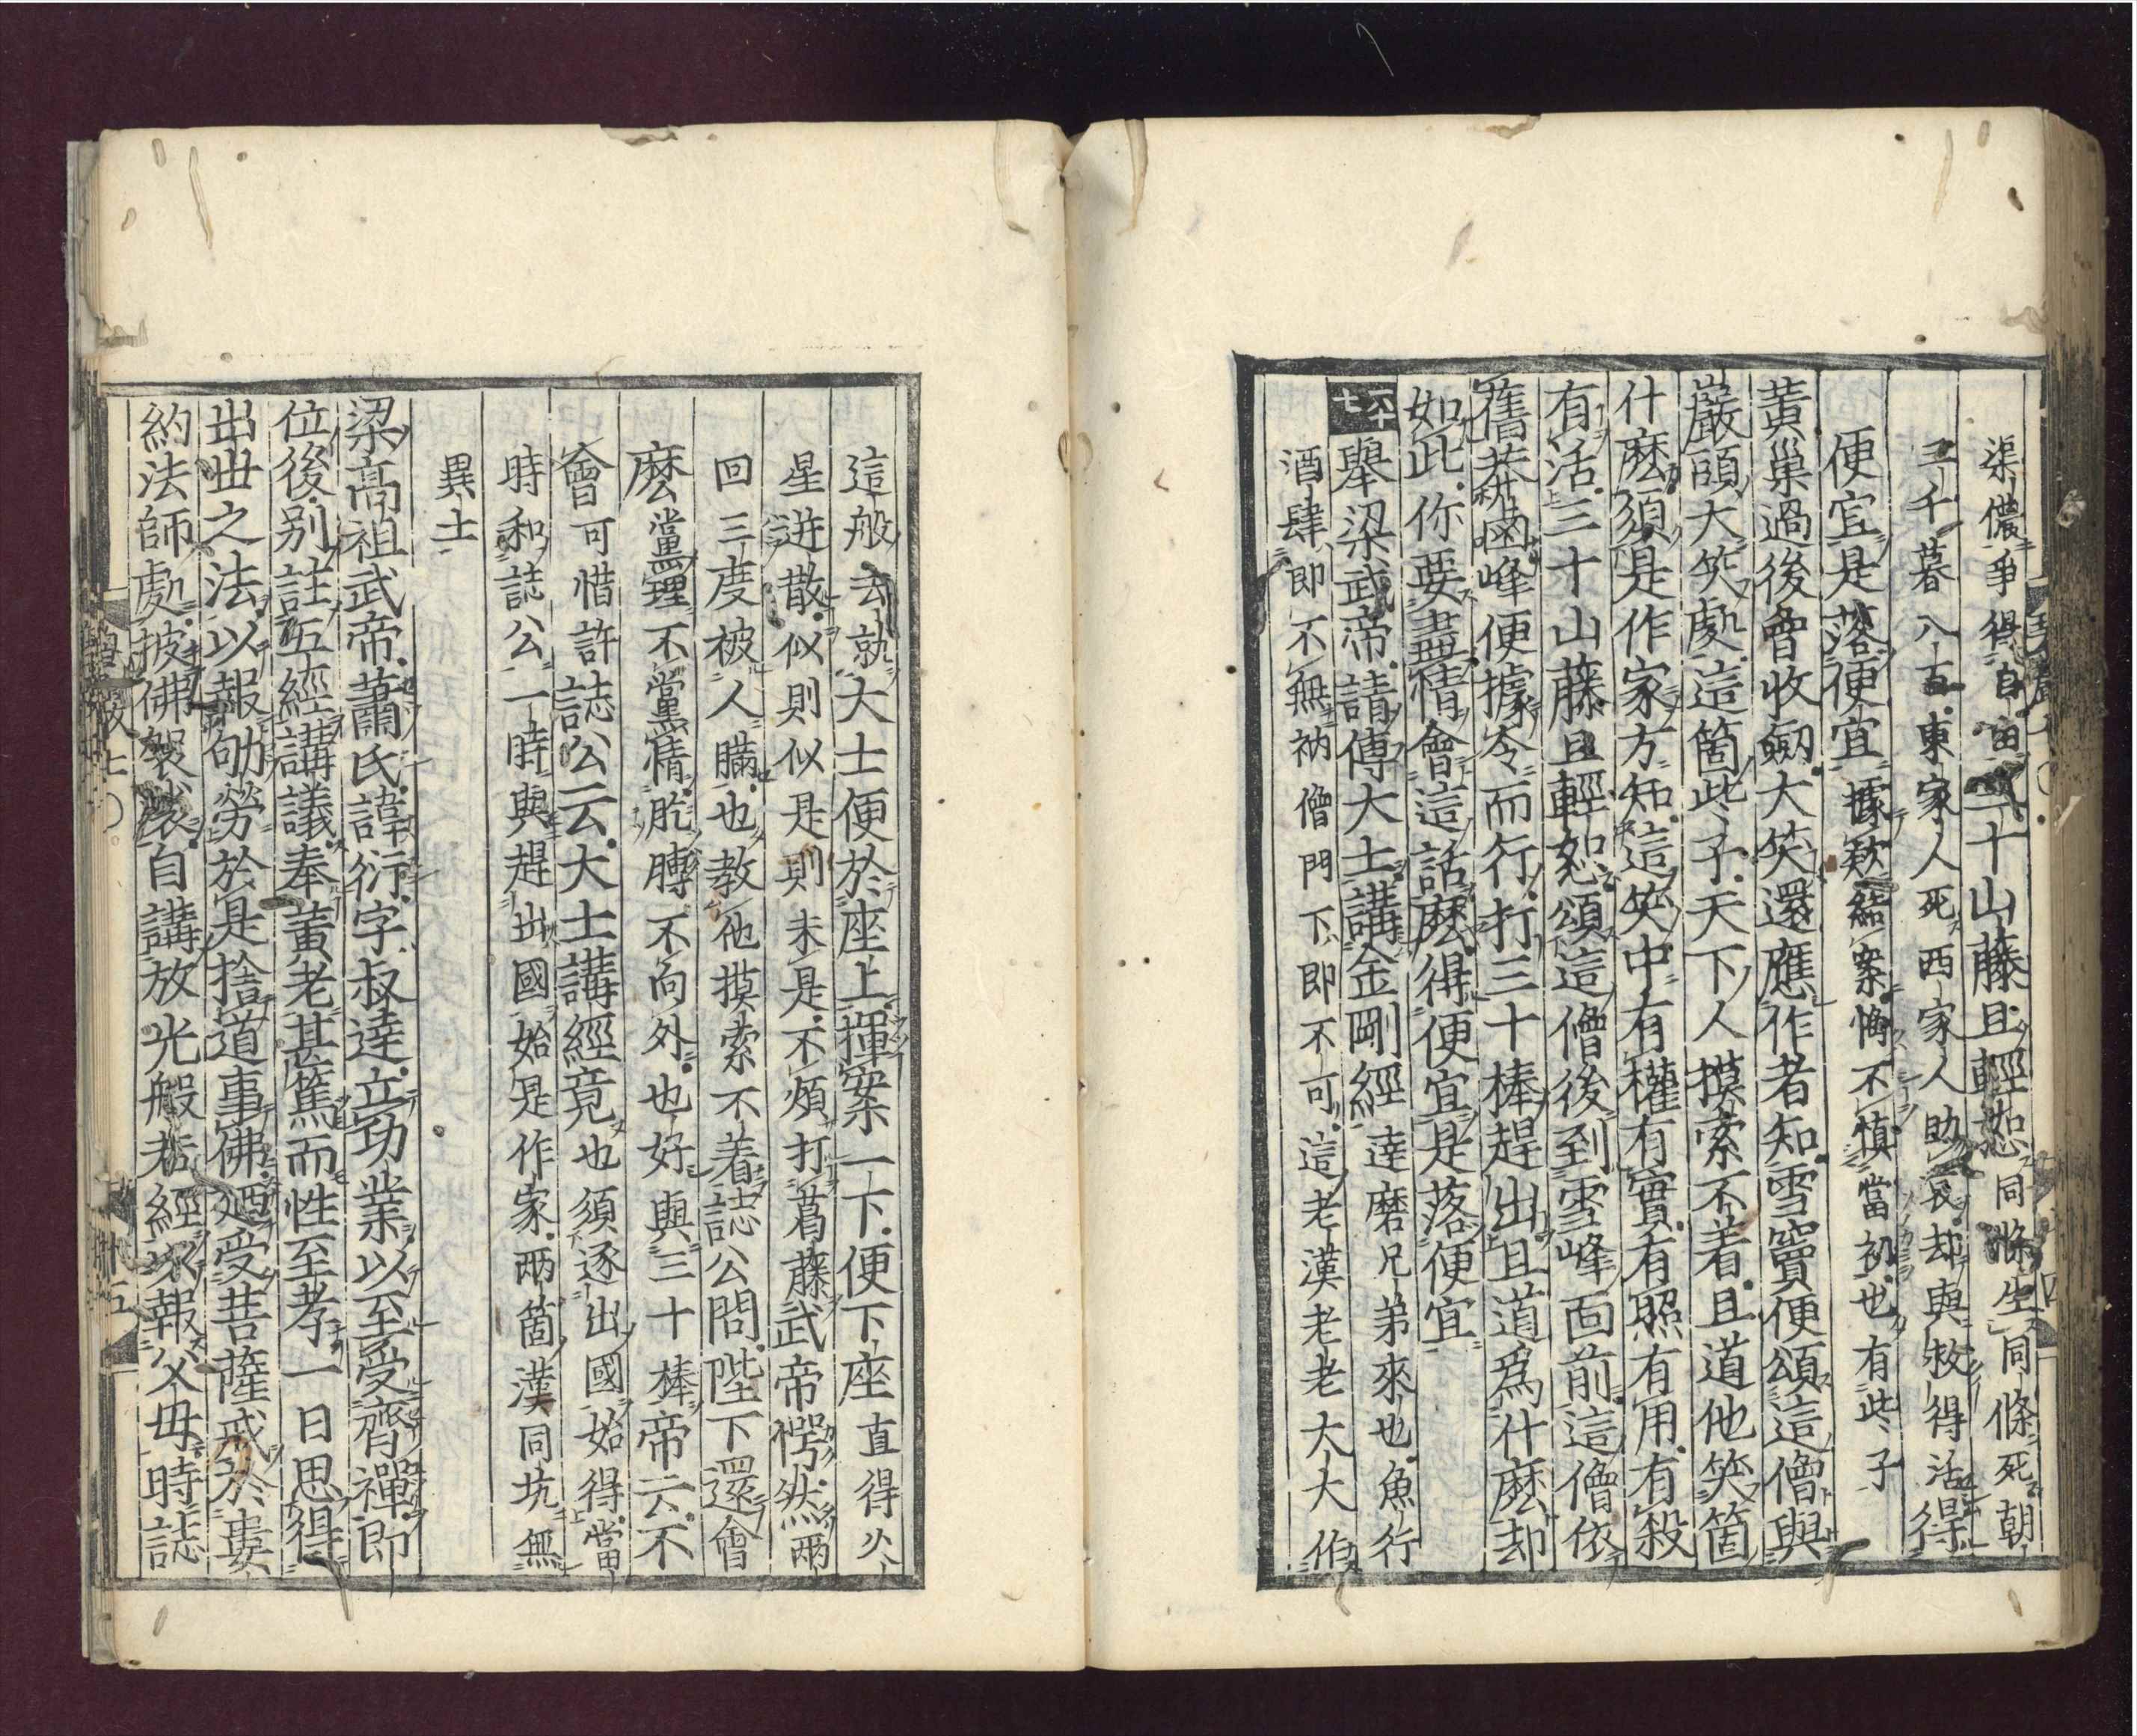 渠儂爭得自由三十山藤且輕恕同條生同條死朝
三千暮八百東家人死西家人助哀却與救得活得
便宜是落便宜據欵結案悔不慎當初也有些子
黃巢過後曾收劒大笑還應作者知雪竇便頌這僧與
巖頭大笑處這箇些子天下人摸索不着且道他笑箇
什麽須是作家方知這笑中有權有實有照有用有殺
有活三十山藤且輕恕頌這僧後到雪峰面前這僧依
舊莽鹵峰便據令而行打三十棒趕出且道爲什麽却
如此你要盡情會這話麽得便宜是落便宜
六十七
舉梁武帝請傅大士講金剛經達磨兄弟來也魚行
酒肆即不無衲僧門下即不可這老漢老老大大作
這般去就大士便於座上揮案一下便下座直得火
星迸散似則似是則未是不煩打葛藤武帝愕然兩
回三度被人瞞也教他摸索不着誌公問陛下還會
麽黨理不黨情肐膊不向外也好與三十棒帝云不
會可惜許誌公云大士講經竟也須逐出國始得當
時和誌公一時與趕出國始是作家兩箇漢同坑無
異土
梁高祖武帝蕭氏諱衍字叔達立功業以至受齊禪即
位後別註五經講議奉黃老甚篤而性至孝一日思得
出世之法以報劬勞於是捨道事佛廼受菩薩戒於婁
約法師處披佛袈裟自講放光般若經以報父母時誌